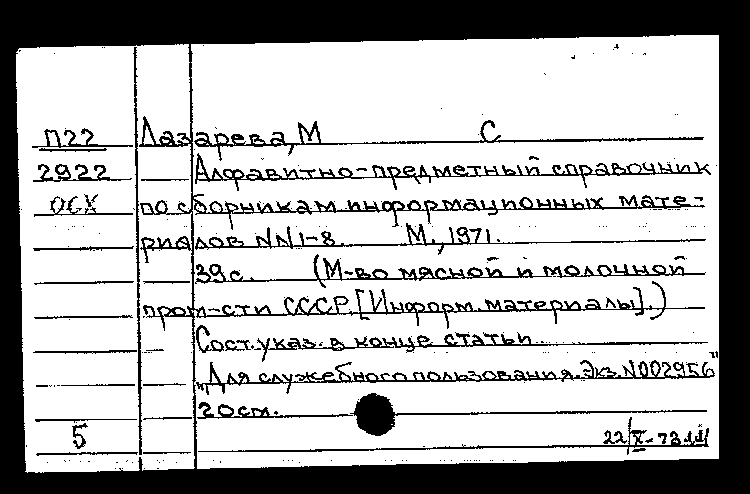 П22 Лазарева, М С
2922 Алфавитно-предметный справочник
ОСХ по сборникам информационных мате-
риалов NN1-8. М., 1971.
39с. (М-во мясной и молочной
пром-сти СССР. [Информ. материалы].)
Сост. указ. в конце статьи.
"Для служебного пользования. Экз. N002956"
20см.
5 22/X-73